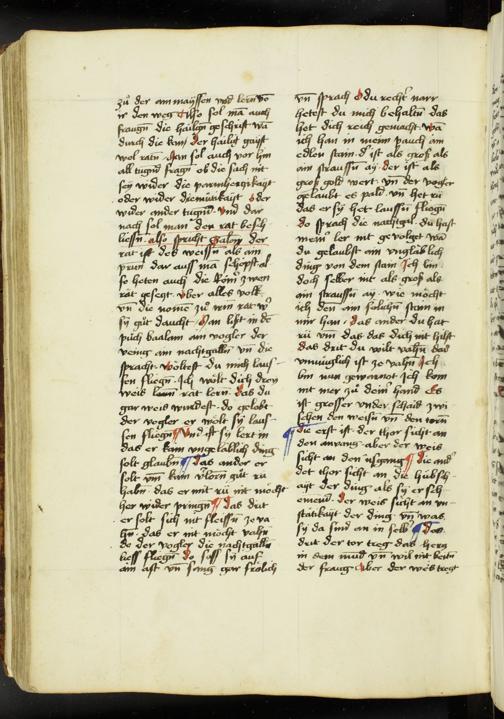 zů der ammayssen vnd lern vō
ir den weg Also sol mā auch
fraugn die hailign geschrift wā
durch die kan der hailig gaist
wol ratn Man sol auch vor hin
all tugnd fragn ob die sach nit
sey wider die parmhertzikayt
oder wider diemütikayt oder
wider ander tugnd Vnd dar
nach sol man den rat besch
liessn also spricht Salon der
rat ist des weissn als ain
prun dar auss mā schöpft al
so heten auch die Römˀ zwen
rat gesetzt Aber alles volk
vn̄ die nome zů irm rat wˀ
sy gůt daucht Man list in dē
půch baalam ain vogler der
vieng ain nachtgalln vn̄ die
sprach woltest du mich lauf
sen fliegn Ich wölt dich drey
weis rät lern das du
gar weis wurdest do gelobt
der vogler er wolt sy lauf
sen fliegn Vnd ist sy lert in
das er kain vngläblich ding
solt glaubn das ander er
solt vm kain vˀlorn gůt rü
habn das er nit rü nit möcht
her wider pringn das drit
er solt sich nit fleissn ze va
hn das er nit möcht vahn
do der vogler die nachtgalln
liess fliegn do saſs sy auf
ain ast vn̄ sang gar frölich
vn̄ sprach O du rechtˀ narr
hetest du mich behaltn das
het dich reich gemacht wā
ich han in meim pauch ain
edlen stain dˀ ist als groß als
ain straussn ay der ist als
groß gold wert vn̄ der vogler
gelaubt es pald vn̄ het rü
das er sy het laussn fliegn
do sprach die nachtgal du hast
meinˀ ler nit gevolget wā
du gelaubst ain vngläblich
ding von dem stain Ich bin
doch selber nit als groß als
ain straussn ay wie möcht
ich den ain solichn stain in
mir han das ander du hast
rü vm̄ das das dich nit hilft
das drit du wilt vahn das
vnmüglich ist ze vahn Ich
bin nun gewarnot Ich kom
nit mer zů deinˀ hand Es
ist grosser vnder schaid zwi
schen den weisn vn̄ den torn
die erst ist der thor sicht an
den anvang aber der weis
sicht an den vsgang die and
der thor sicht an die hübsch
ayt der ding als sy ersch
einend der weis sicht an vn
stätikayt der ding vn̄ was
sy da sind an in selb das
drit der tor tregt das hertz
in dem mud vn̄ wil nit beitn
der fraug Aber der weis tregt